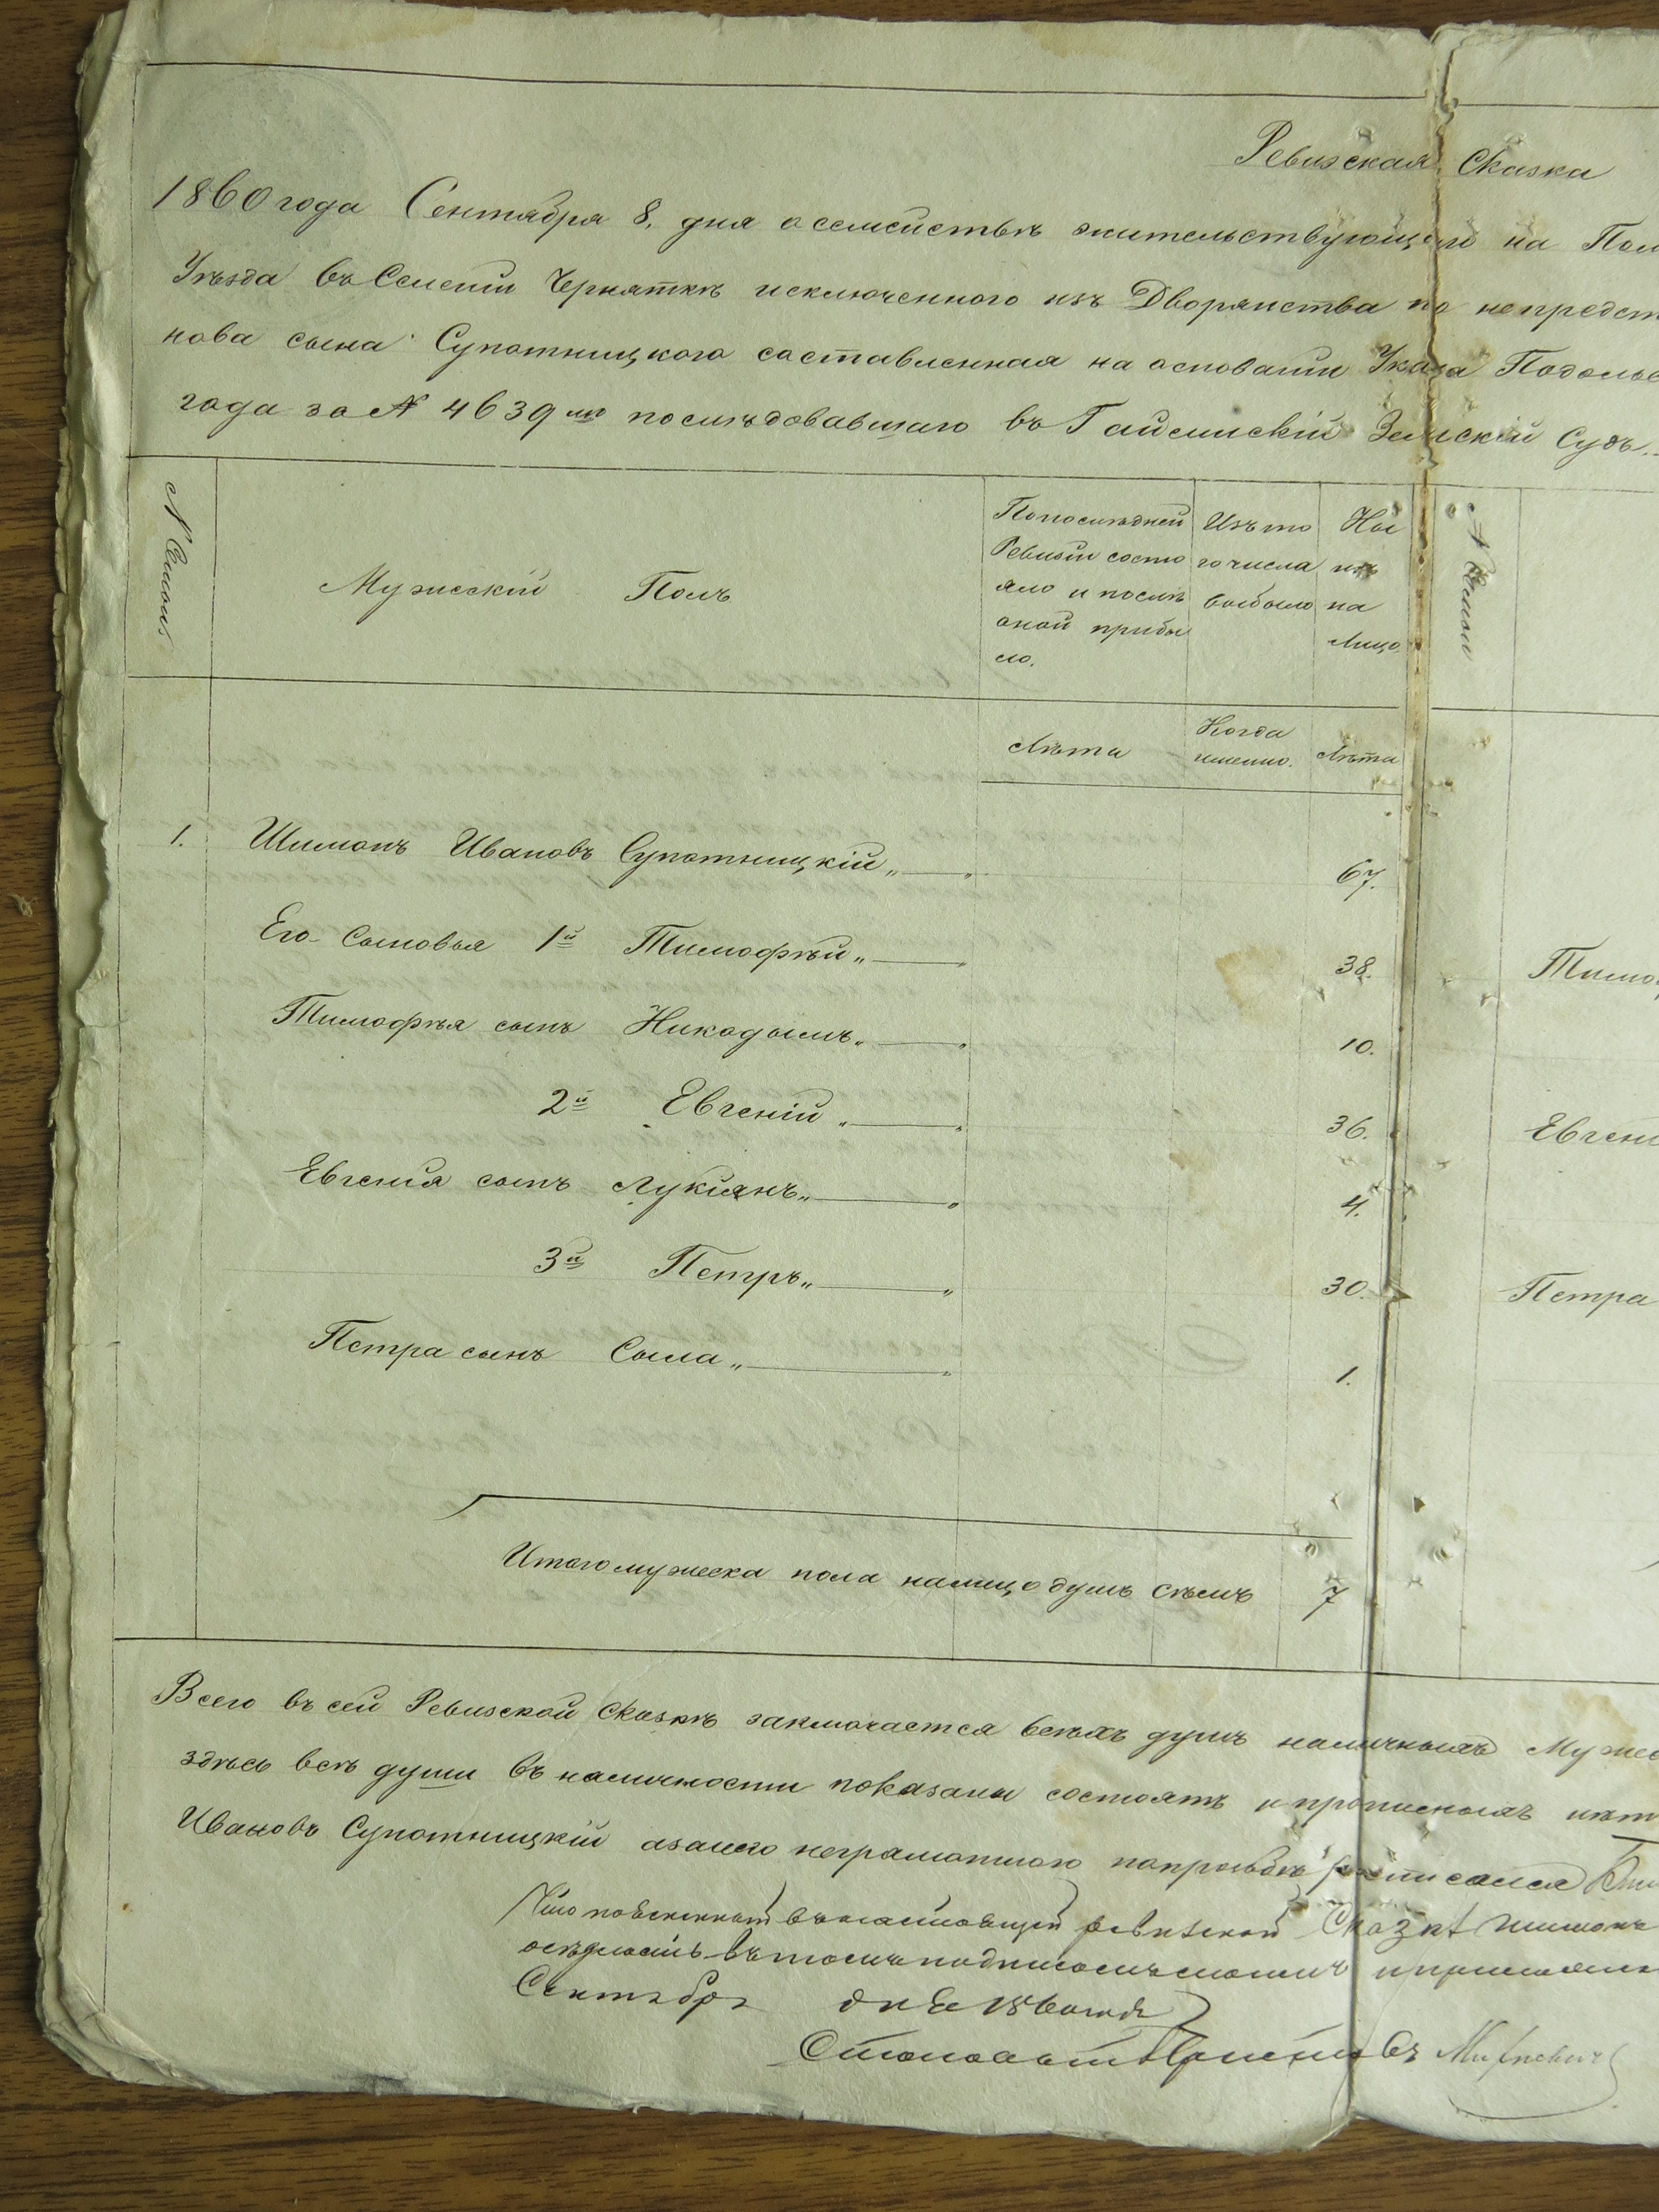 Ревизская Сказка
1860 года Сентября 8. дня о семействѣ жительствующей на Пом
Уѣзда въ Селеніи Черняткѣ исключенного изъ Дворянства по непредст
нова сына Супотницкого составленная на основаніи Указа Подольс
года за № 4639 мъ послѣдовавшаго въ Гайсинскій Земскій Судъ.
№ Семьи
Мужескій Полъ
По послѣдней
Ревизіи состо
яло и послѣ
оной прибы
ло.
Изъ то
го числа
выбыло
Ны
нѣ
на
Лицо.
№ Семьи
Лѣта
Когда
именно.
Лѣта
1. Шимонъ Ивановъ Супотницкій „ — „ 67.
Его Сыновья 1й Тимофѣй „ — „ 38. Тимо
Тимофѣя сынъ Никодымъ „ — „ 10.
2й Евгеній „ — „ 36. Евгені
Евгенія сынъ Лукіянъ „ — „ 4.
3й Петръ „ — „ 30. Петра
Петра сынъ Сыла „ — „ 1.
Итого мужеска пола налицо душъ сѣмъ 7
Всего въ сей Ревизской Сказкѣ заключается всѣхъ душъ наличныхъ Мужес
здѣсь всѣ души въ наличности показаны состоятъ и прописныхъ нѣт
Ивановъ Супотницкій а за него неграмотного по прозьбѣ росписался
Что поясненный въ настоящей ревизской Сказкѣ Шимонъ
осѣдлость въ томъ подписомъ моимъ и
Сентября дня 1860 года
Становой Приставъ